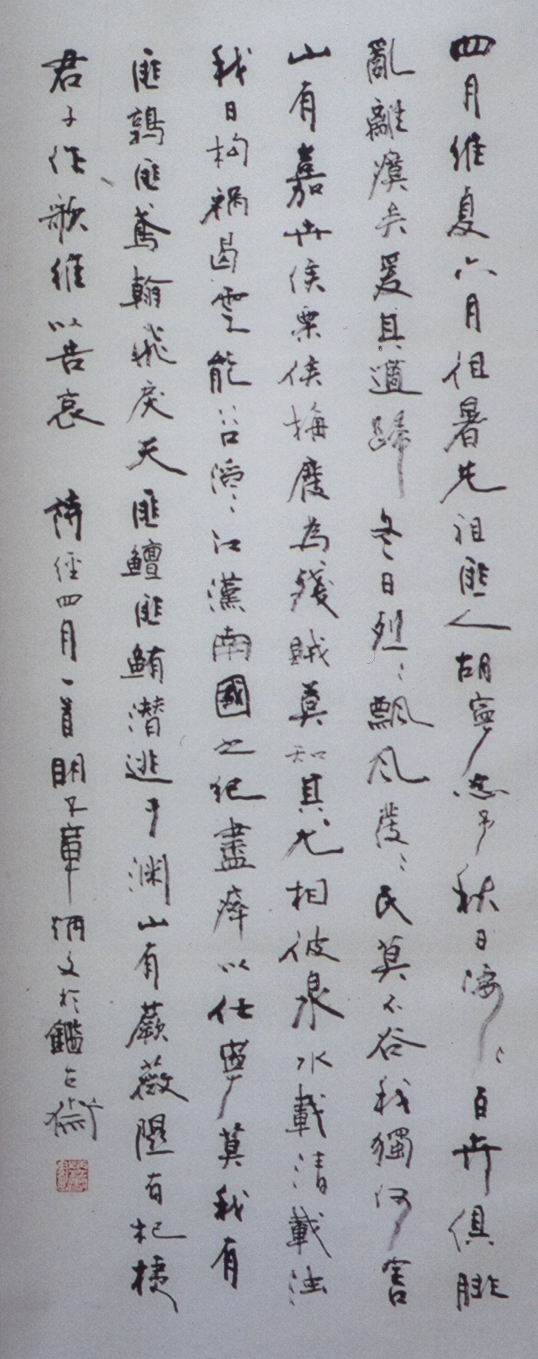 四月維夏六月徂暑先祖匪人胡寧忍予秋日淒〻百卉俱腓
亂離瘼矣爰其適歸 冬日烈〻飄風發〻民莫不谷我獨何害
山有嘉卉侯栗侯梅廢為殘賊莫知其尤相彼泉水載清載濁
我日构禍曷雲能谷滔〻江漢南國之紀盡瘁以仕寧莫我有
匪鶉匪鳶翰飛戾天匪鱣匪鮪潛逃于淵山有蕨薇隰有杞桋
君子作歌維以告哀 詩經四月一首 章炳文於鑑古